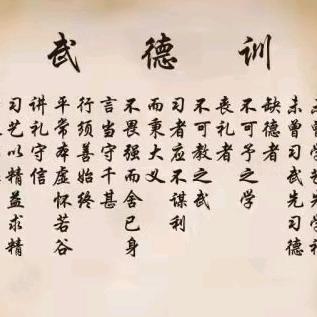 武德训
未曾习武先习德
缺德者
不可予之学
丧礼者
不可教之武
习者应不谋利
而秉大义
不畏强而舍己身
言当守千甚
行须善始终
平常本虚怀若谷
讲礼守信
习艺以精益求精